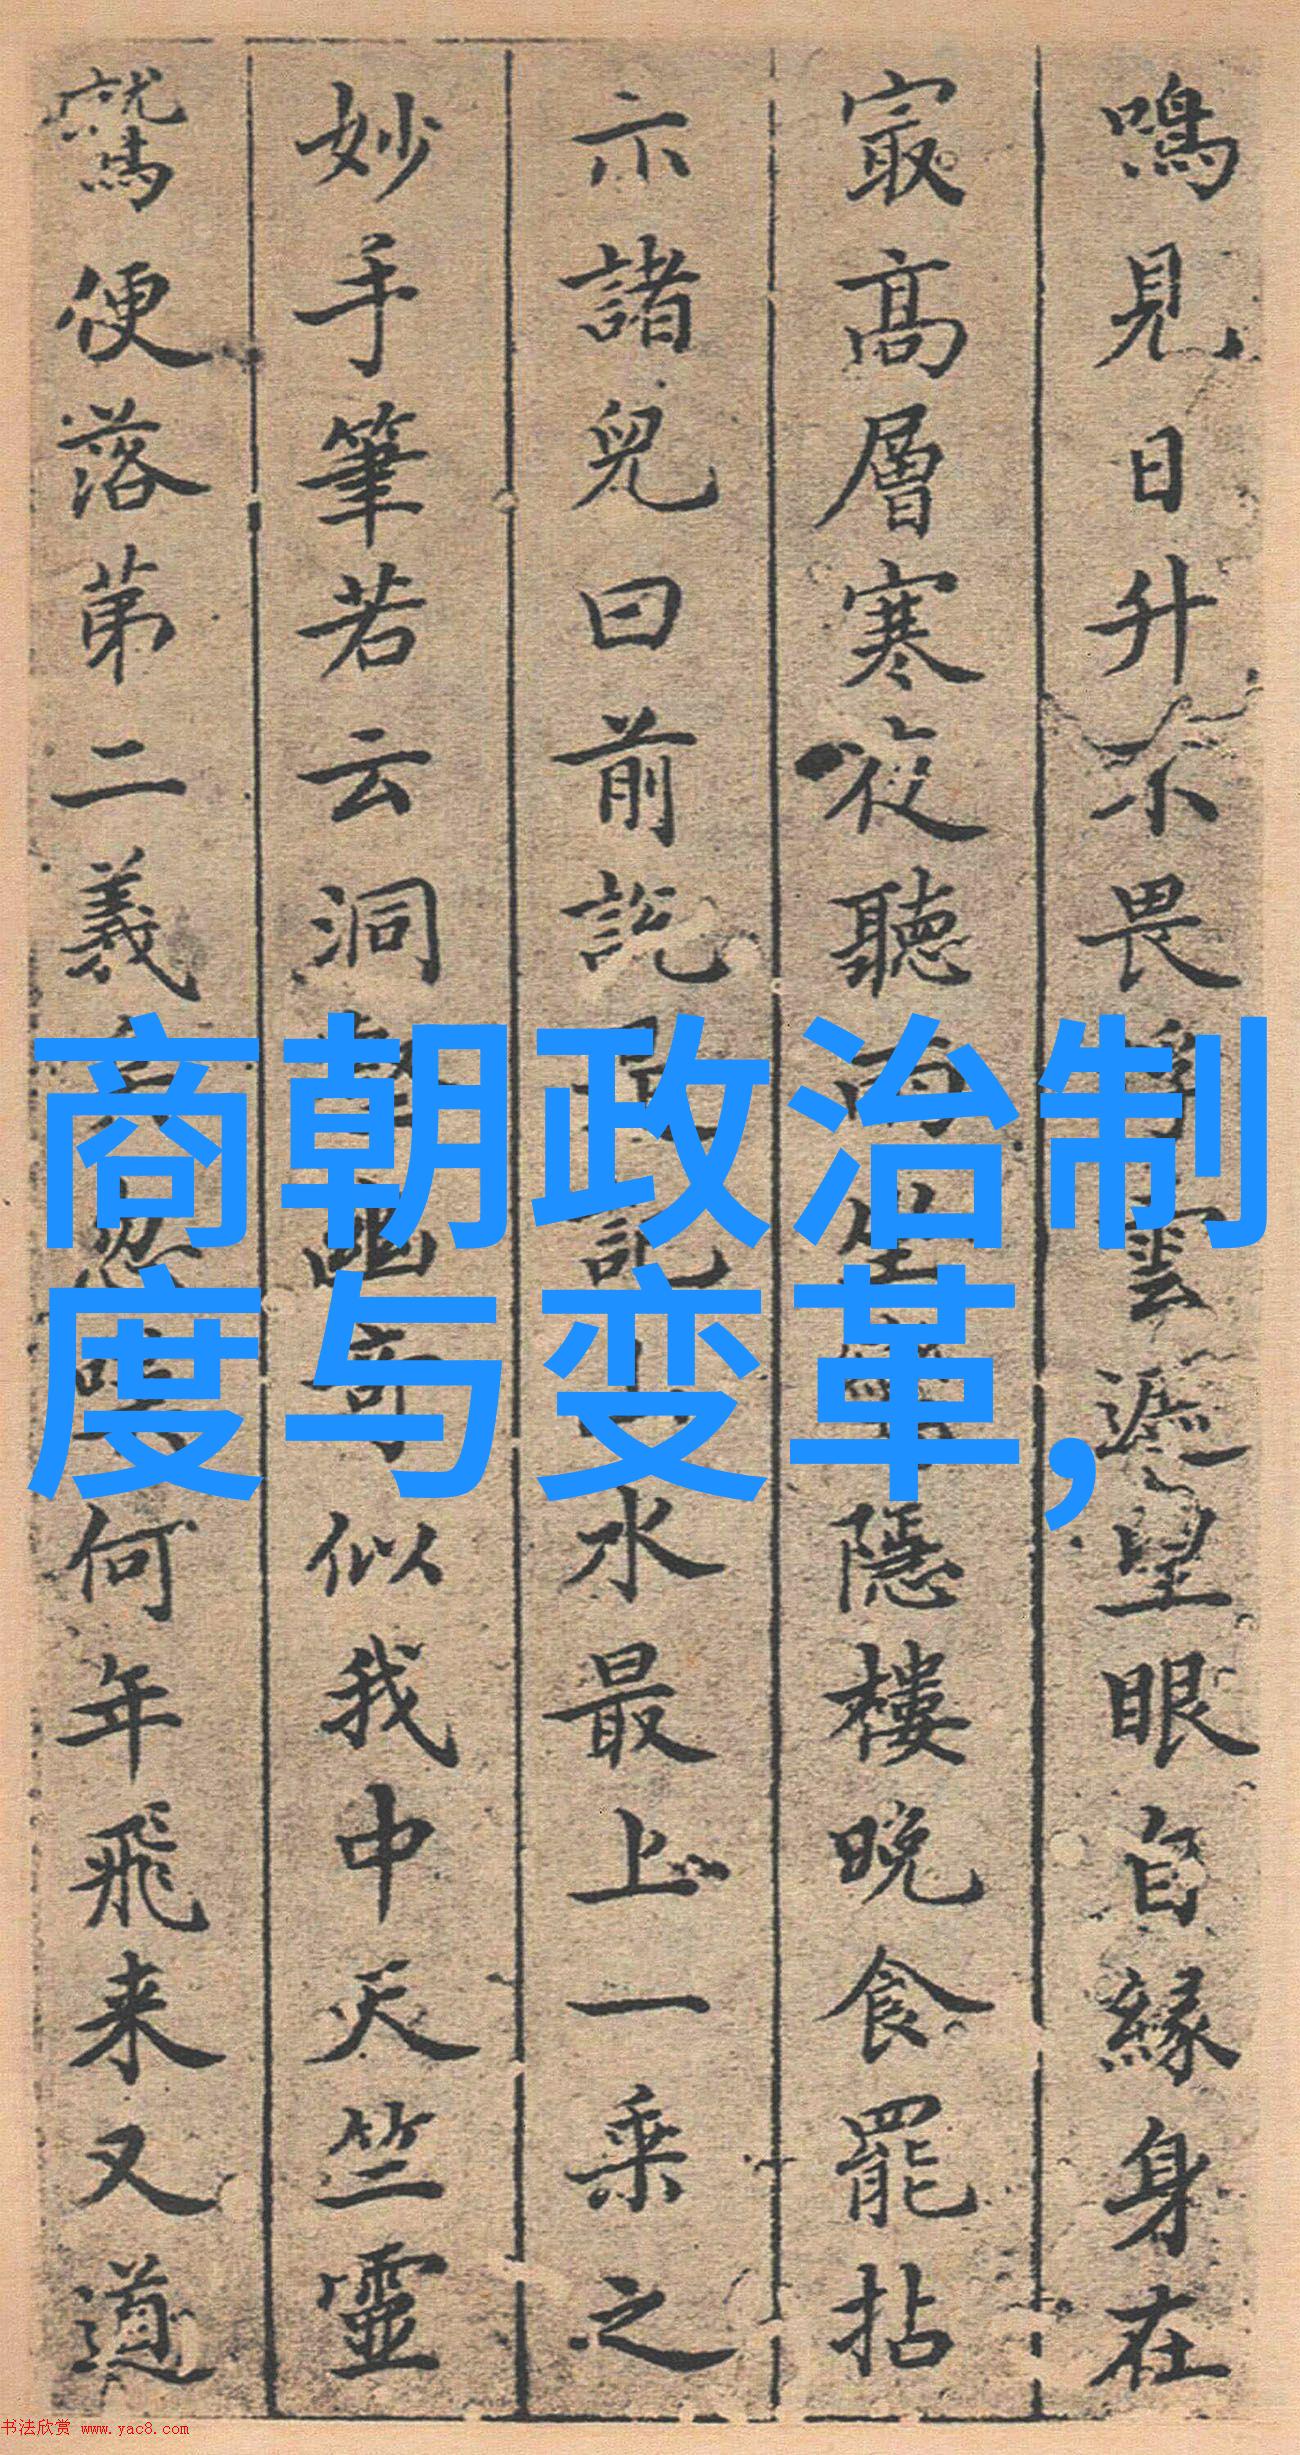 鳴見日升不畏浮雲遮望眼自緣身在
冣高層寒夜聽雨坐隱樓晚食罷拈
示諸兒曰前說是說山水最上一乘之
妙手筆若云洞壑幽奇似我中天竺靈
鷲便落第二義矣忽何年飛来又道
商朝政治制
度与变革,
书法欣赏 www.yac8.com